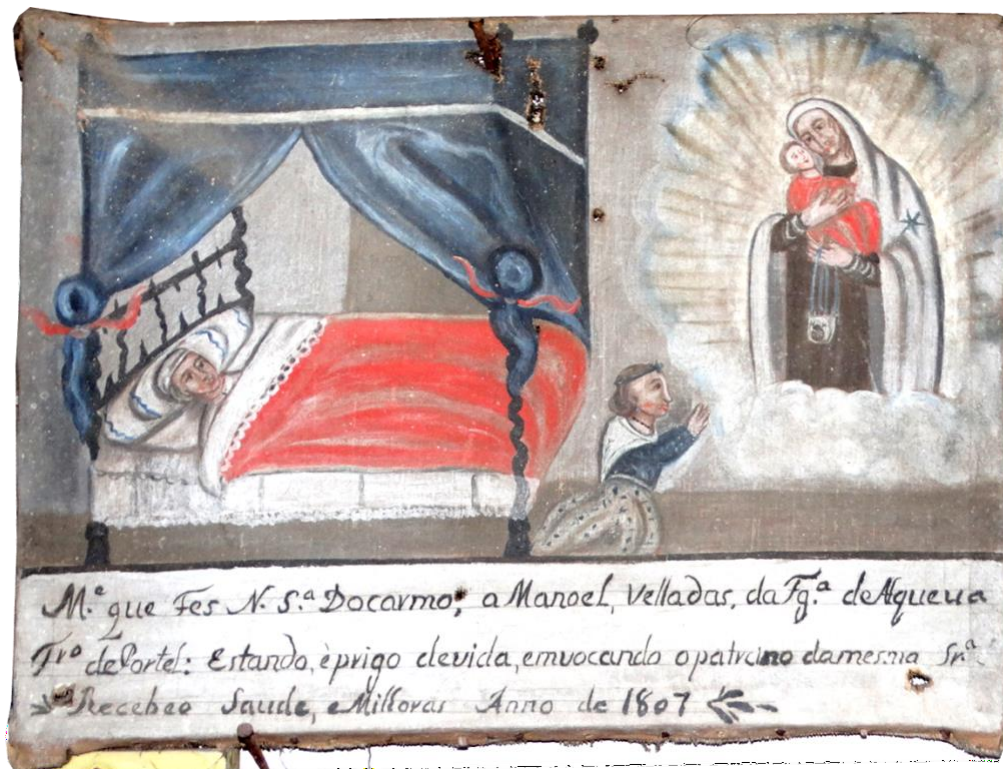 M.ᵉ que Fes N. S.ª Docarmo, a Manoel, Velladas, da Fg.ª de Alqueua
Trº de Portel: Estando, è prigo devida, emvocando o patrcino damesma Srª
Recebeo Saude, e Milloras Anno de 1807